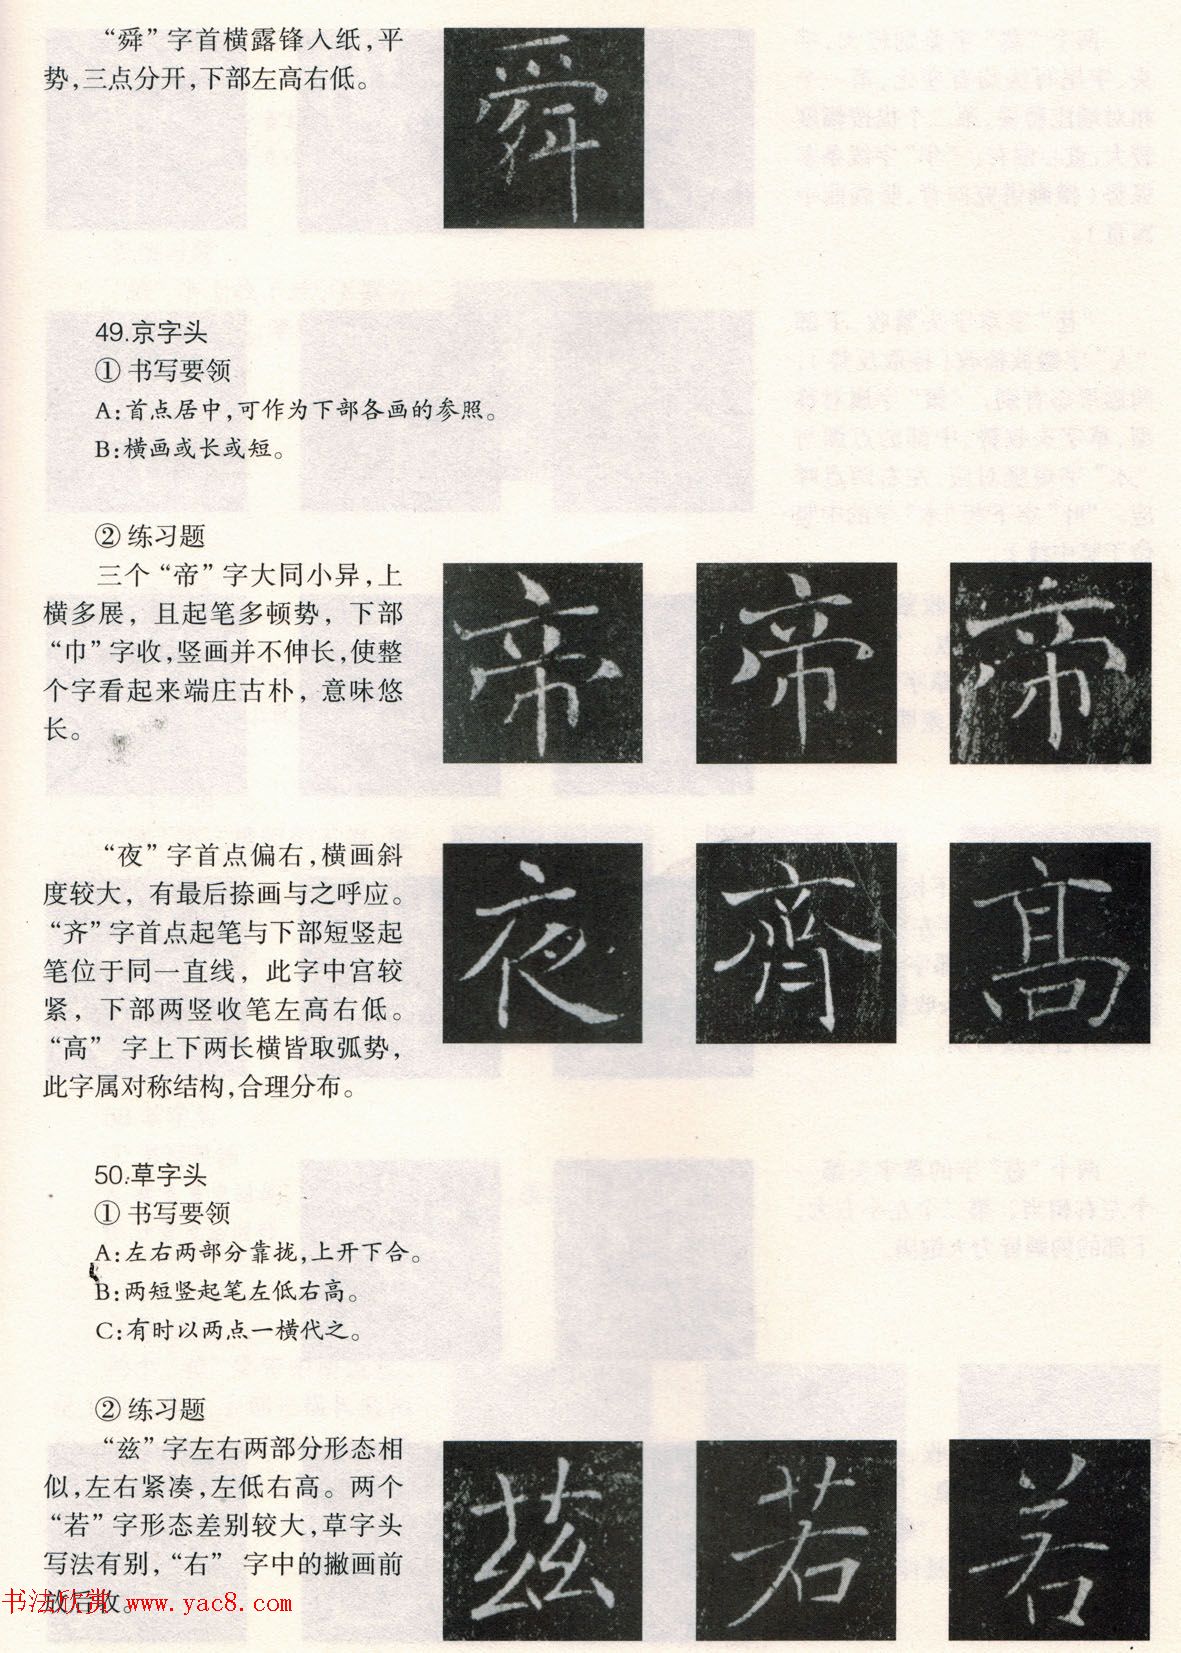 “舜”字首横露锋入纸，平
势，三点分开，下部左高右低。
舜
49.京字头
① 书写要领
A：首点居中，可作为下部各画的参照。
B：横画或长或短。
② 练习题
三个“帝”字大同小异，上
横多展，且起笔多顿势，下部
“巾”字收，竖画并不伸长，使整
个字看起来端庄古朴，意味悠
长。
帝 帝 帝
“夜”字首点偏右，横画斜
度较大，有最后捺画与之呼应。
“齐”字首点起笔与下部短竖起
笔位于同一直线，此字中宫较
紧，下部两竖收笔左高右低。
“高”字上下两长横皆取弧势，
此字属对称结构，合理分布。
夜 齊 髙
50.草字头
① 书写要领
A：左右两部分靠拢，上开下合。
B：两短竖起笔左低右高。
C：有时以两点一横代之。
② 练习题
“兹”字左右两部分形态相
似，左右紧凑，左低右高。两个
“若”字形态差别较大，草字头
写法有别，“右”字中的撇画前
放后收。
兹 若 若
书法欣赏 www.yac8.com